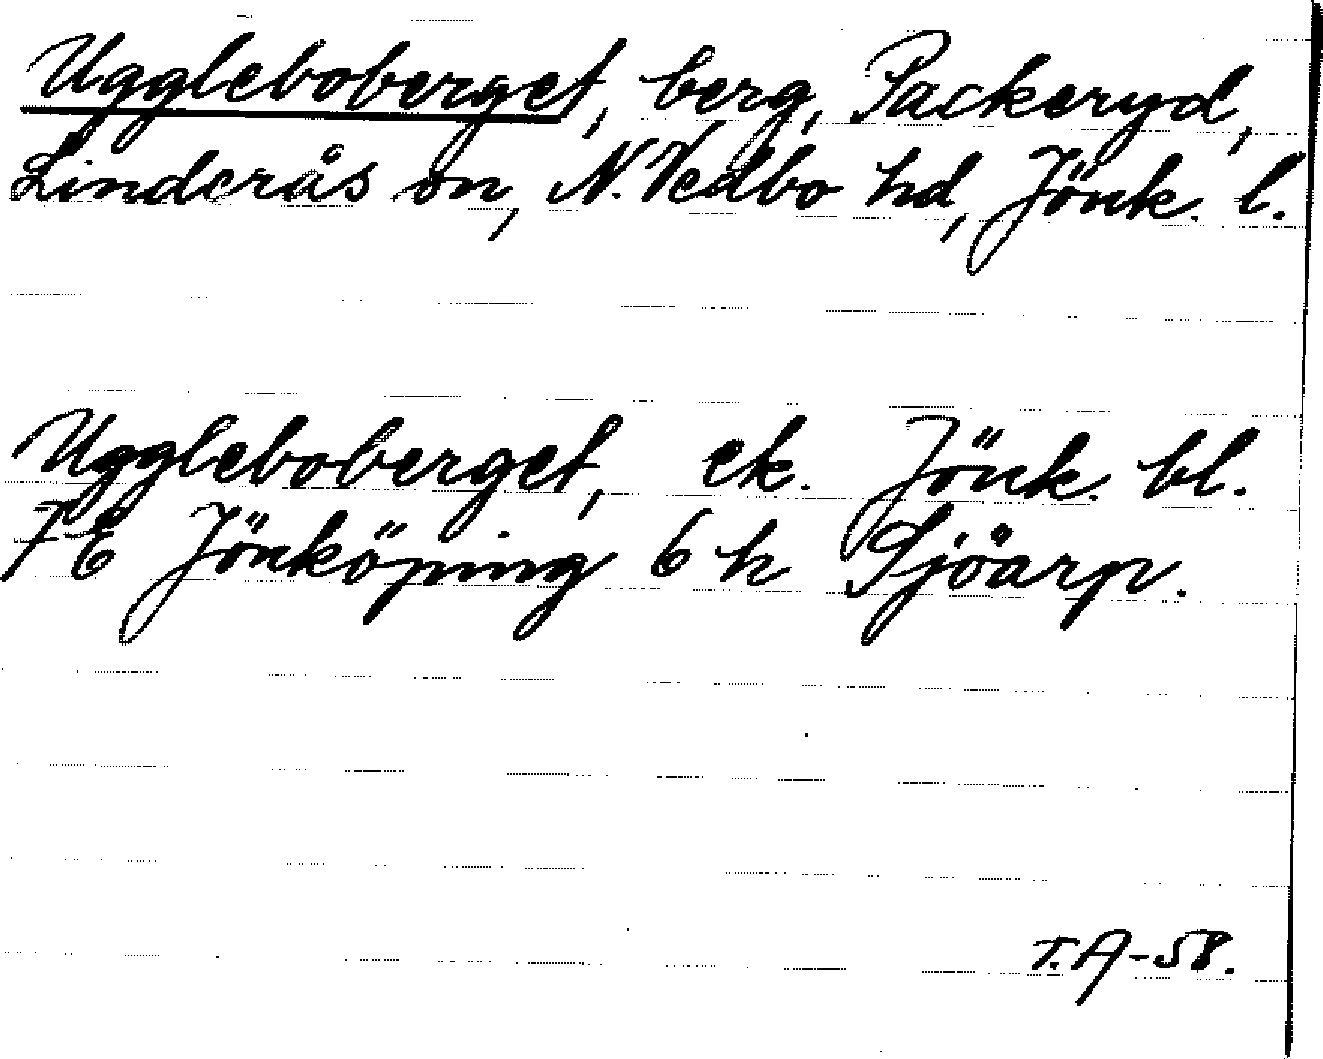 Uggleboberget, berg, Packeryd,
Linderås sn, N. Vedbo hd, Jönk. l.
Uggleboberget, ek. Jönk. bl.
7 E Jönköping 6 h Sjöarp.
T.A-58.